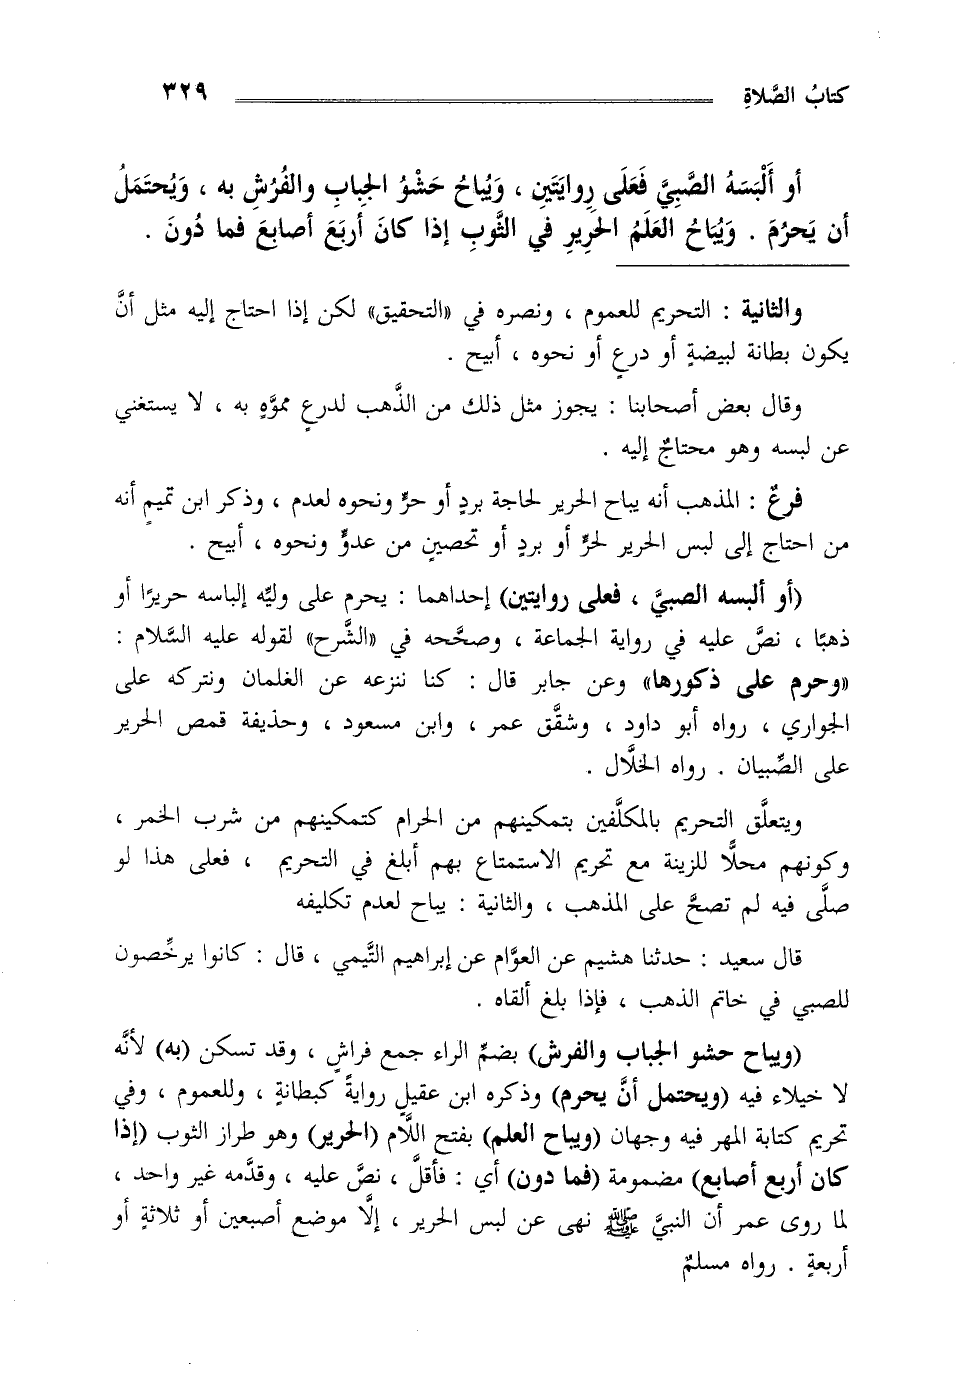 كتابُ الصَّلاةِ ٣٢٩
أو أَلْبَسَهُ الصَّبِيَّ فَعَلَى رِوايَتَينِ ، وَيُباحُ حَشْوُ الجِبابِ والفُرُشِ به ، وَيُحتَمَلُ
أن يَحرُمَ . وَيُبَاحُ العَلَمُ الحَرِيرِ في الثَّوبِ إذا كانَ أربَعَ أصابِعَ فما دُونَ .
والثانية : التحريم للعموم ، ونصره في «التحقيق» لكن إذا احتاج إليه مثل أنَّ
يكون بطانة لبيضةٍ أو درعٍ أو نحوه ، أبيح .
وقال بعض أصحابنا : يجوز مثل ذلك من الذَّهب لدرعٍ مموَّهٍ به ، لا يستغني
عن لبسه وهو محتاجٌ إليه .
فرعٌ : المذهب أنه يباح الحرير لحاجة بردٍ أو حرٍّ ونحوه لعدم ، وذكر ابن تميمٍ أنه
من احتاج إلى لبس الحرير لحرٍّ أو بردٍ أو تحصينٍ من عدوٍّ ونحوه ، أبيح .
(أو ألبسه الصبيَّ ، فعلى روايتين) إحداهما : يحرم على وليِّه إلباسه حريرًا أو
ذهبًا ، نصَّ عليه في رواية الجماعة ، وصحَّحه في «الشَّرح» لقوله عليه السَّلام :
«وحرم على ذكورها» وعن جابر قال : كنا ننزعه عن الغلمان ونتركه على
الجواري ، رواه أبو داود ، وشقَّق عمر ، وابن مسعود ، وحذيفة قمص الحرير
على الصِّبيان . رواه الخلَّال .
ويتعلَّق التحريم بالمكلَّفين بتمكينهم من الحرام كتمكينهم من شرب الخمر ،
وكونهم محلًّا للزينة مع تحريم الاستمتاع بهم أبلغ في التحريم ، فعلى هذا لو
صلَّى فيه لم تصحَّ على المذهب ، والثانية : يباح لعدم تكليفه
قال سعيد : حدثنا هشيم عن العوَّام عن إبراهيم التَّيمي ، قال : كانوا يرخِّصون
للصبي في خاتم الذهب ، فإذا بلغ ألقاه .
(ويباح حشو الجباب والفرش) بضمِّ الراء جمع فراشٍ ، وقد تسكن (به) لأنَّه
لا خيلاء فيه (ويحتمل أنَّ يحرم) وذكره ابن عقيلٍ روايةً كبطانةٍ ، وللعموم ، وفي
تحريم كتابة المهر فيه وجهان (ويباح العلم) بفتح اللَّام (الحرير) وهو طراز الثوب (إذا
كان أربع أصابع) مضمومة (فما دون) أي : فأقلَّ ، نصَّ عليه ، وقدَّمه غير واحد ،
لما روى عمر أن النبيَّ ﷺ نهى عن لبس الحرير ، إلَّا موضع أصبعين أو ثلاثةٍ أو
أربعةٍ . رواه مسلمٌ